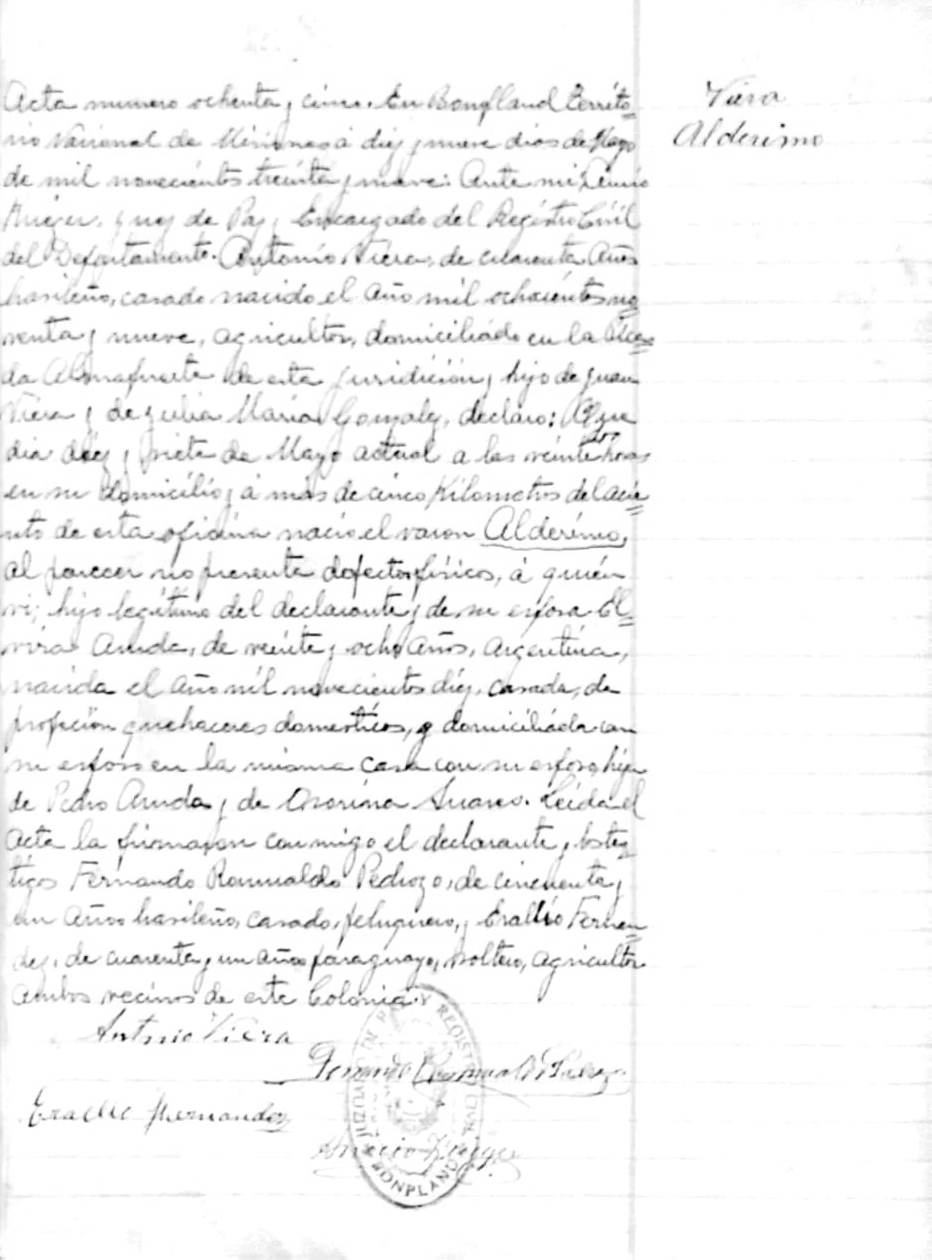 Viera
Alderimo
Acta numero ochenta y cinco. En Bonpland Territo=
rio Nacional de Misiones á diez y nueve dias de Mayo
de mil novecientos treinta y nueve: Ante mi,
Juez de Paz y Encargado del Registro Civil
del Departamento. Antonio Viera, de cuarenta Años
brasileño, casado nacido el Año mil ochocientos no=
venta y nueve, agricultor, domiciliado en la Pica=
da Almafuerte de esta juridición y hijo de Juan
Viera y de Julia Maria Gonzalez, declaro: Que
dia diez y siete de Mayo actual a las veinte horas
en su domicilio y á más de cinco Kilometros del acie=
nto de esta oficina nació el varon Alderimo,
al parecer no presenta defectos fisicos, á quién
vi; hijo legitimo del declarante y de su esposa El=
vira Aruda, de veinte y ocho Años, Argentina,
nacida el Año mil novecientos diez, casada, de
profeción quehaceres domesticos, y domiciliada con
su esposo en la misma casa con su esposo, hija
de Pedro Aruda y de Suares. Leida el
Acta la firmaron conmigo el declarante y los tes=
tigos Fernando Romualdo Pedrozo, de cincuenta y
un Años brasileño, casado, peluquero, y Eraclio Fernan=
dez, de cuarenta y un años paraguayo, soltero, agricultor
Ambos vecinos de este Colonia.
Antonio Viera
Fernando Romualdo
Eraclio Hernandez
REGISTRO CIVIL
BONPLAND